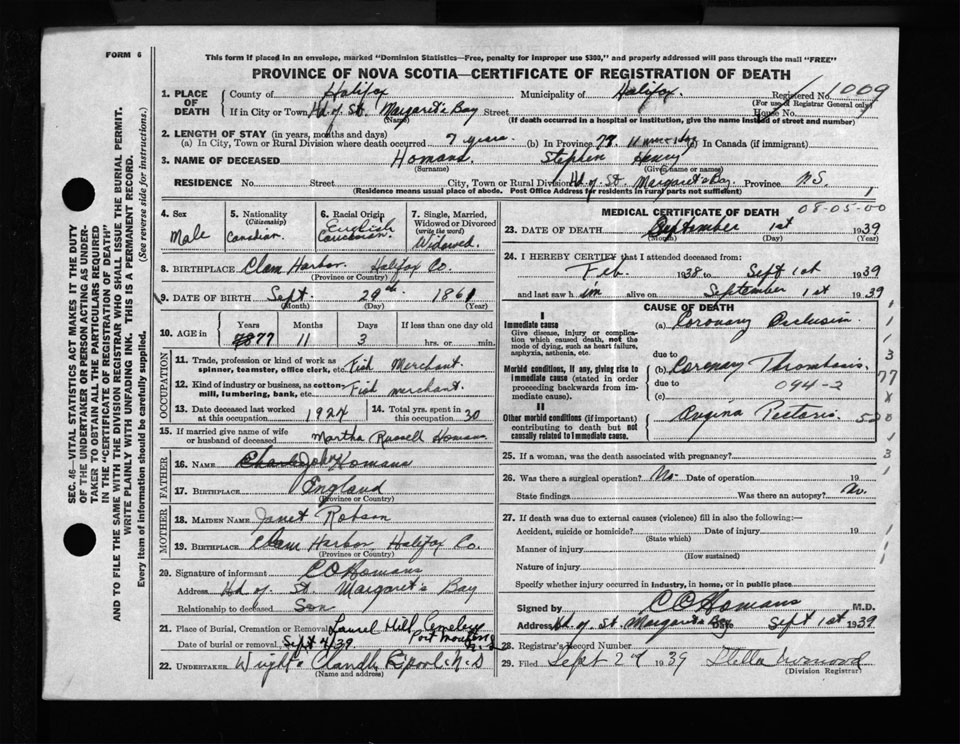 FORM 6
This form if placed in an envelope, marked "Dominion Statistics—Free, penalty for improper use $300," and properly addressed will pass through the mail "FREE"
PROVINCE OF NOVA SCOTIA—CERTIFICATE OF REGISTRATION OF DEATH
1. PLACE OF DEATH County of Halifax Municipality of Halifax. Registered No. 1009
(For use of Registrar General only)
If in City or Town Hd. of St. Margaret's Bay Street House No.
(Name) (If death occurred in a hospital or institution, give the name instead of street and number)
2. LENGTH OF STAY (in years, months and days)
(a) In City, Town or Rural Division where death occurred 7 years. (b) In Province 77 11 (c) In Canada (if immigrant)
3. NAME OF DECEASED Homans, Stephen Henry
(Surname) (Given name or names)
RESIDENCE No. Street City, Town or Rural Division Hd. of St. Margaret's Bay. Province N.S.
(Residence means usual place of abode. Post Office Address for residents in rural parts not sufficient) 1
SEC. 46—VITAL STATISTICS ACT MAKES IT THE DUTY
OF THE UNDERTAKER OR PERSON ACTING AS UNDER-
TAKER TO OBTAIN ALL THE PARTICULARS REQUIRED
IN THE "CERTIFICATE OF REGISTRATION OF DEATH"
AND TO FILE THE SAME WITH THE DIVISION REGISTRAR WHO SHALL ISSUE THE BURIAL PERMIT.
WRITE PLAINLY WITH UNFADING INK. THIS IS A PERMANENT RECORD.
Every item of information should be carefully supplied. (See reverse side for instructions.)
4. Sex Male
5. Nationality (Citizenship) Canadian.
6. Racial Origin English Caucasian.
7. Single, Married, Widowed or Divorced (write the word) Widowed.
8. BIRTHPLACE Clam Harbor. Halifax Co.
(Province or Country)
9. DATE OF BIRTH Sept. 29th 1861
(Month) (Day) (Year)
10. AGE in Years Months Days If less than one day old
77 11 3 hrs. or min.
OCCUPATION
11. Trade, profession or kind of work as spinner, teamster, office clerk, etc. Fish Merchant.
12. Kind of industry or business, as cotton mill, lumbering, bank, etc. Fish merchant.
13. Date deceased last worked at this occupation 1924
14. Total yrs. spent in this occupation 30
15. If married give name of wife or husband of deceased Martha Russell Homans
FATHER
16. NAME John Homans
17. BIRTHPLACE England
(Province or Country)
MOTHER
18. MAIDEN NAME Janet Robson
19. BIRTHPLACE Clam Harbor Halifax Co.
(Province or Country)
20. Signature of informant C O Homans
Address Hd. of St. Margaret's Bay
Relationship to deceased Son
21. Place of Burial, Cremation or Removal Laurel Hill Cemetery
Date of burial or removal Sept 4/39.
22. UNDERTAKER
(Name and address)
MEDICAL CERTIFICATE OF DEATH 08-05-00
23. DATE OF DEATH September 1st 1939
(Month) (Day) (Year)
24. I HEREBY CERTIFY that I attended deceased from:
Feb. 1938 to Sept 1st 1939
and last saw him alive on September 1st 1939
CAUSE OF DEATH
I
Immediate cause
Give disease, injury or complication which caused death, not the mode of dying, such as heart failure, asphyxia, asthenia, etc.
(a) Coronary Occlusion.
due to
Morbid conditions, if any, giving rise to immediate cause (stated in order proceeding backwards from immediate).
(b) Coronary Thrombosis.
due to 094-2
(c)
II
Other morbid conditions (if important) contributing to death but not causally related to immediate cause.
Angina Pectoris
25. If a woman, was the death associated with pregnancy?
26. Was there a surgical operation? No- Date of operation 19
State findings Was there an autopsy? No.
27. If death was due to external causes (violence) fill in also the following:—
Accident, suicide or homicide? Date of injury 19
(State which)
Manner of injury
(How sustained)
Nature of injury
Specify whether injury occurred in industry, in home, or in public place
Signed by C O Homans M.D.
Address Hd. of St. Margarets Bay Date Sept 1st 1939
28. Registrar's Record Number
29. Filed Sept 2nd 1939
(Division Registrar)